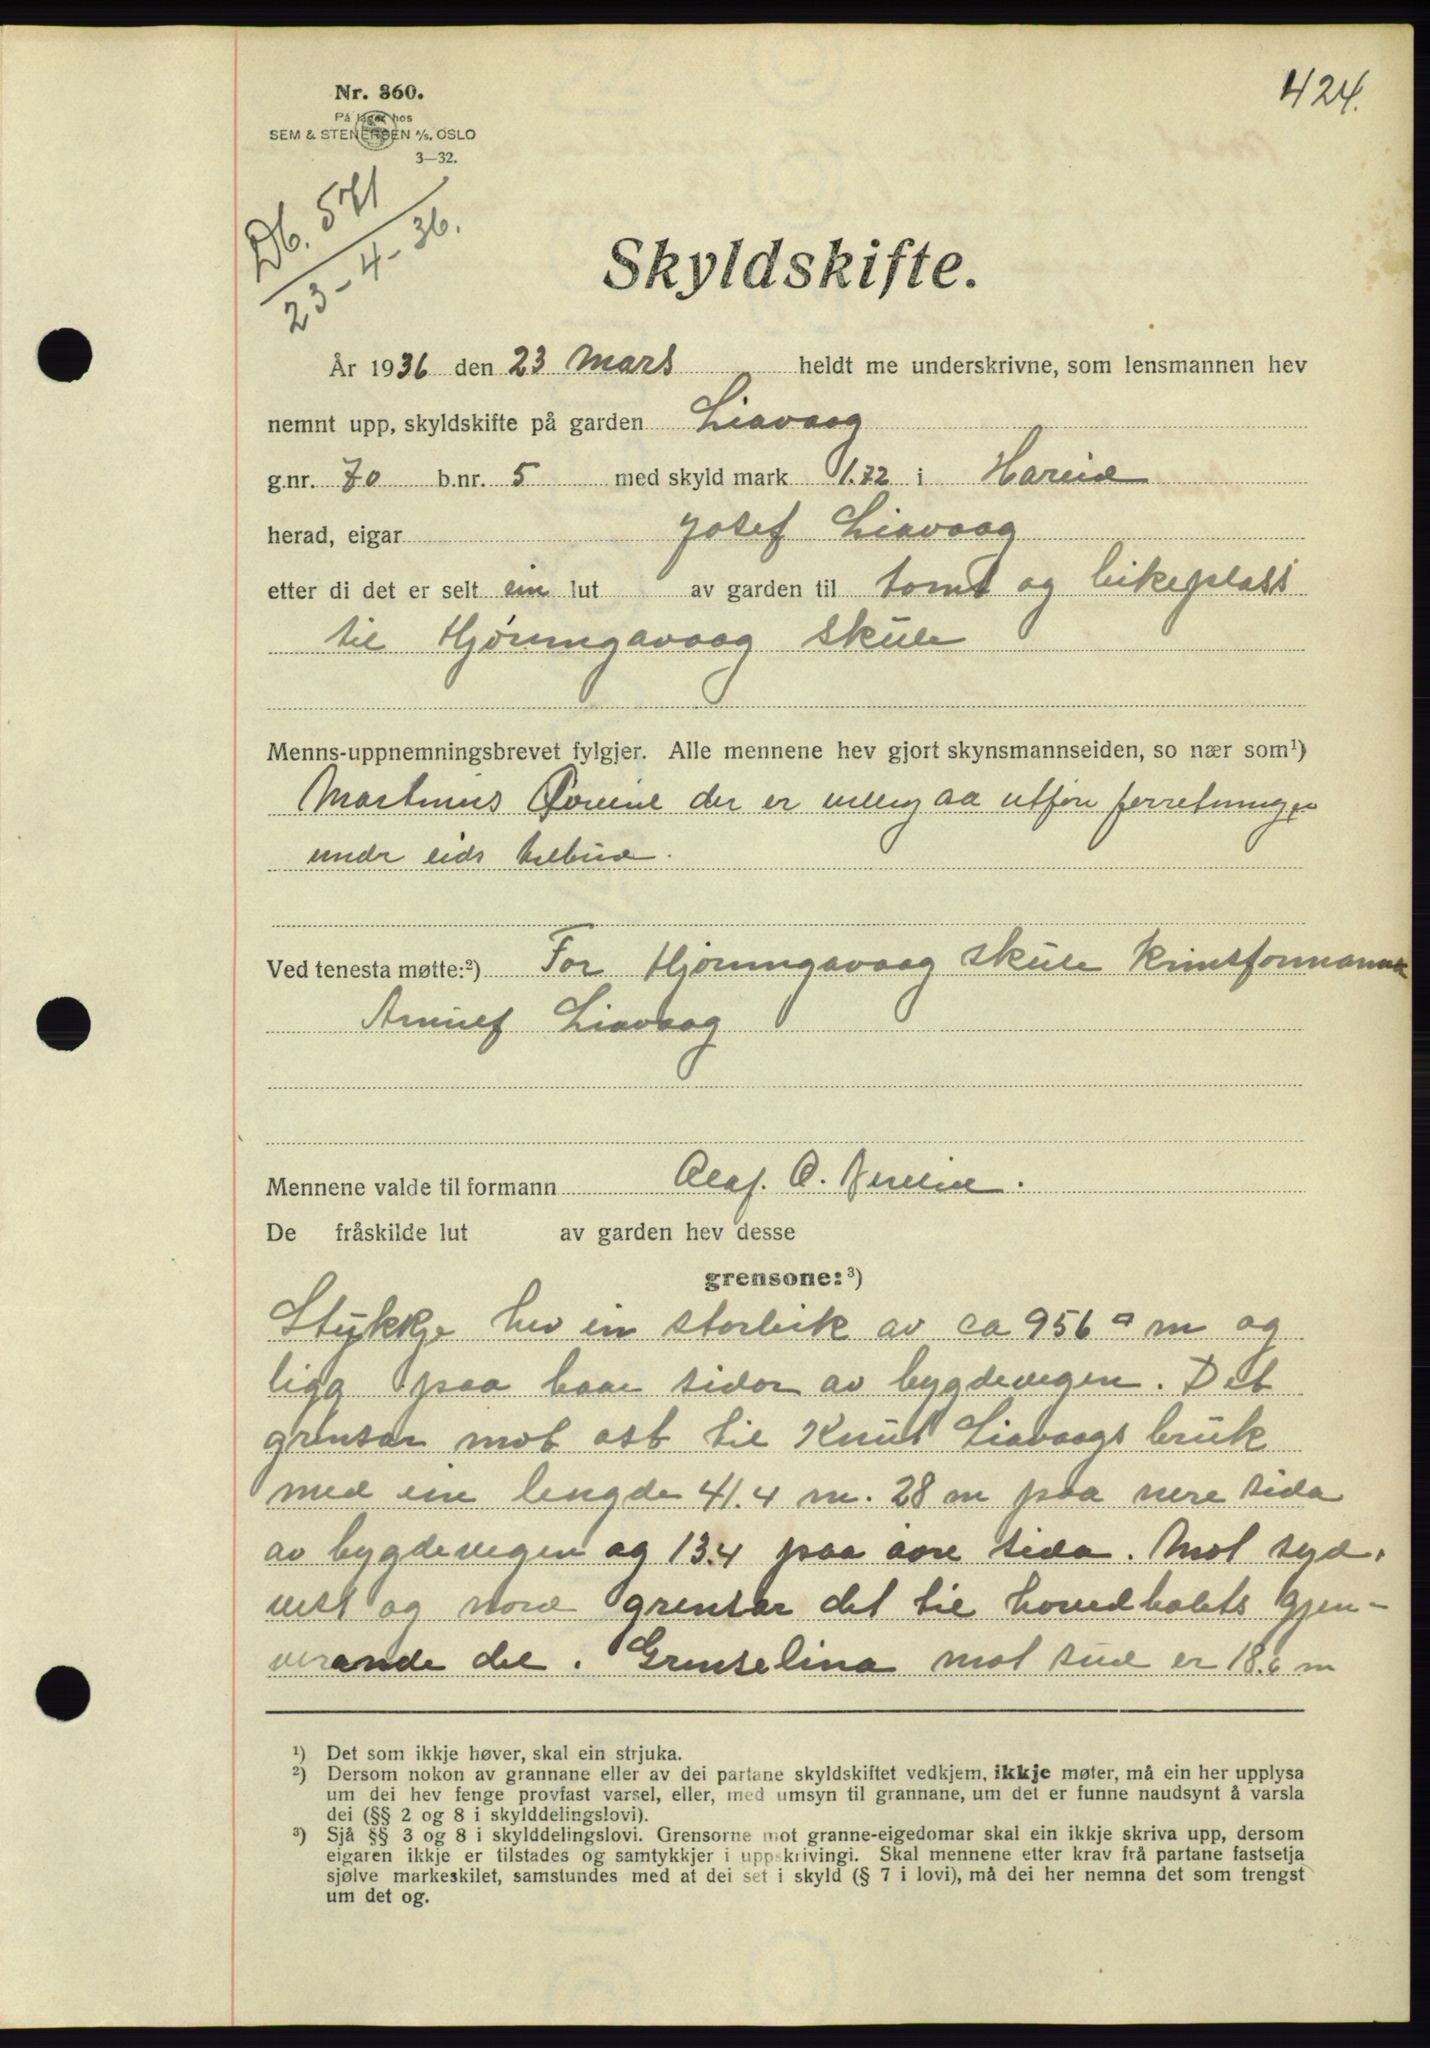 424.
Nr. 360.
På lager hos
SEM & STENERSEN A/S. OSLO
3—32.
Db. 571
23-4-36.
Skyldskifte.
År 1936 den 23 Mars heldt me underskrivne, som lensmannen hev
nemnt upp, skyldskifte på garden Liavaag
g.nr. 70 b.nr. 5 med skyld mark 1.72 i Hareid
herad, eigar Josef Liavaag
etter di det er selt ein lut av garden til tomt og leikeplass
til Hjørungavaag skule
Menns-uppnemningsbrevet fylgjer. Alle mennene hev gjort skynsmannseiden, so nær som¹)
Martinus der er villig aa utføre forretningen
under eids tilbud.
Ved tenesta møtte:²) For Hjørungavaag skule Krinsformannen
Arnulf Liavaag
Mennene valde til formann Olaf. O.
De fråskilde lut av garden hev desse
grensone:³)
Stykkje hev ein storleik av ca 956 □ m og
ligg paa baae sidor av bygdevegen. Det
grensar mot ost til Knut Liavaags bruk
med ein lengde 41.4 m. 28 m paa nere sida
av bygdevegen og 13.4 paa øvre sida. Mot syd,
vest og nord grensar det til hovedbølets gjen-
verande del. Grenselina mot sud er 18.6 m
¹) Det som ikkje høver, skal ein strjuka.
²) Dersom nokon av grannane eller av dei partane skyldskiftet vedkjem, ikkje møter, må ein her upplysa
um dei hev fenge provfast varsel, eller, med umsyn til grannane, um det er funne naudsynt å varsla
dei (§§ 2 og 8 i skylddelingslovi).
³) Sjå §§ 3 og 8 i skylddelingslovi. Grensorne mot granne-eigedomar skal ein ikkje skriva upp, dersom
eigaren ikkje er tilstades og samtykkjer i uppskrivingi. Skal mennene etter krav frå partane fastsetja
sjølve markeskilet, samstundes med at dei set i skyld (§ 7 i lovi), må dei her nemna det som trengst
um det og.